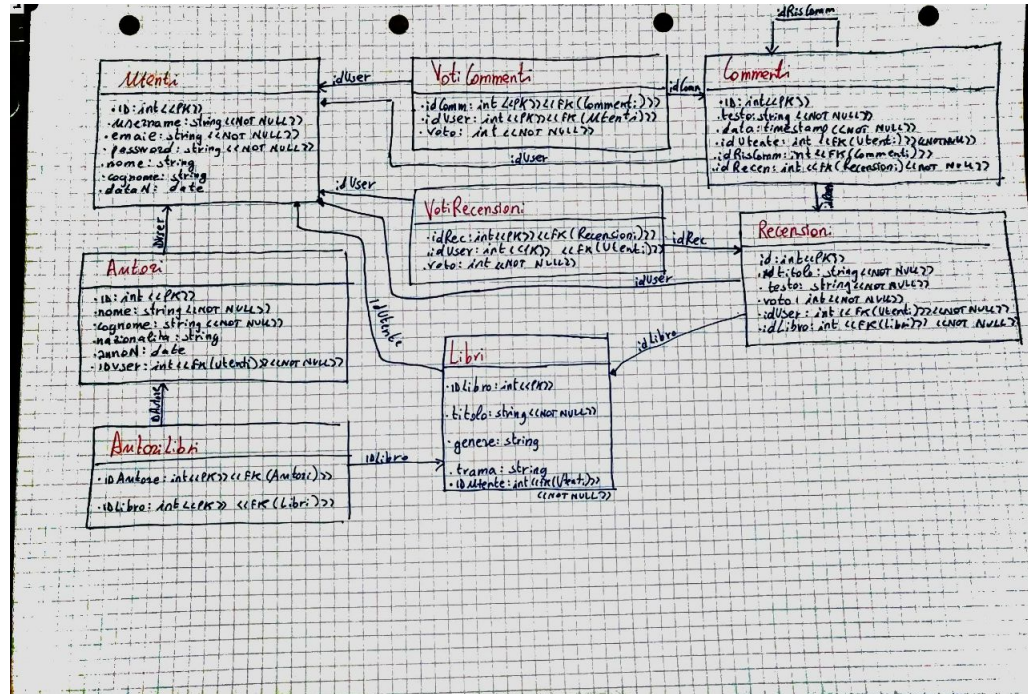 idRisComm
Utenti
· ID: int <<PK>>
· Username: string <<NOT NULL>>
· email: string <<NOT NULL>>
· password: string <<NOT NULL>>
· nome: string
· cognome: string
· dataN: date
idUser
VotiCommenti
· idComm: int <<PK>> <<FK(Commenti)>>
· idUser: int <<PK>> <<FK(Utenti)>>
· voto: int <<NOT NULL>>
idComm
Commenti
· ID: int <<PK>>
· testo: string <<NOT NULL>>
· data: timestamp <<NOT NULL>>
· idUtente: int <<FK(Utenti)>> <<NOTNULL>>
· idRisComm: int <<FK(Commenti)>>
· idRecen: int <<FK(Recensioni)<<NOT NULL>>
idUser
idUser
VotiRecensioni
· idRec: int <<PK>> <<FK(Recensioni)>>
· idUser: int <<PK>> <<FK(Utenti)>>
· voto: int <<NOT NULL>>
idRec
Recensioni
id: int <<PK>>
titolo: string <<NOT NULL>>
· testo: string <<NOT NULL>>
· voto: int <<NOT NULL>>
· idUser: int <<FK(Utenti)>> <<NOT NULL>>
· idLibro: int <<FK(Libri)>> <<NOT NULL>>
idUser
IDUser
Autori
· ID: int <<PK>>
· nome: string <<NOT NULL>>
· cognome: string <<NOT NULL>>
· nazionalita: string
· annoN: date
· IDUser: int <<FK(Utenti)>> <<NOT NULL>>
idUtente
idLibro
Libri
· IDLibro: int <<PK>>
· titolo: string <<NOT NULL>>
· genere: string
· trama: string
· IDUtente: int <<FK(Utenti)>>
<<NOT NULL>>
IDAutore
AutoriLibri
· IDAutore: int <<PK>> <<FK(Autori)>>
· IDLibro: int <<PK>> <<FK(Libri)>>
IDLibro